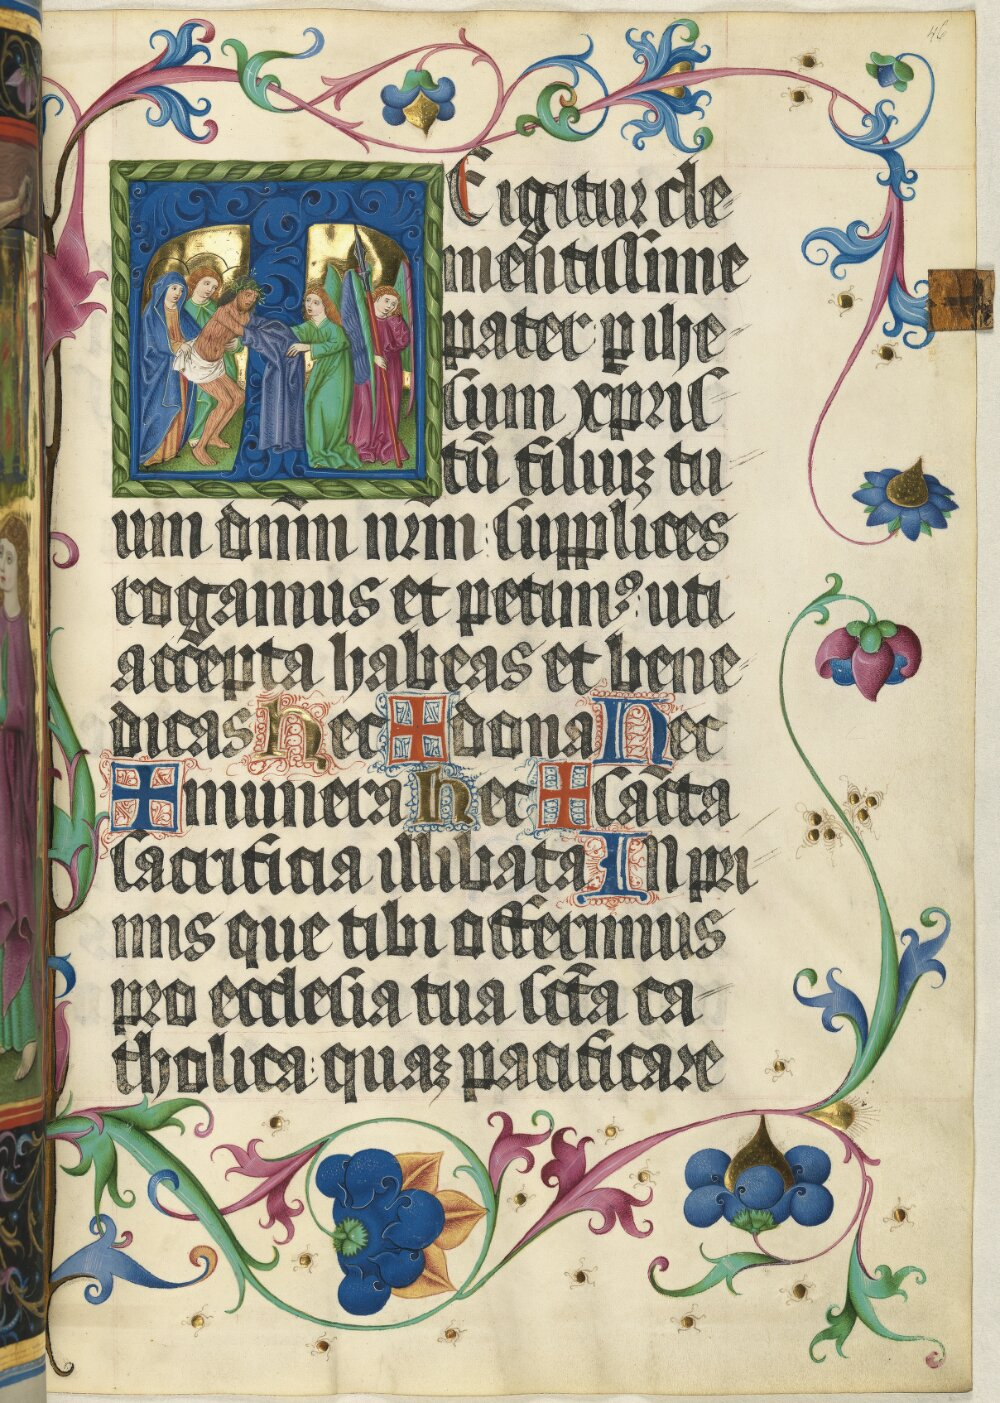 46
TE igitur cle⸗
mentissime
pater: p̲ ihe⸗
sum xp̄ris⸗
tū filiuꝫ tu⸗
um dn̄m nr̄m: Supplices
rogamus et petimꝰ: uti
accepta habeas et bene⸗
dicas hec ✠ dona Nec
✠ munera hec ✠ Sācta
Sacrificia illibata In pri⸗
mis que tibi offerimus
pro ecclesia tua sctā ca⸗
tholica: quaꝫ pacificare